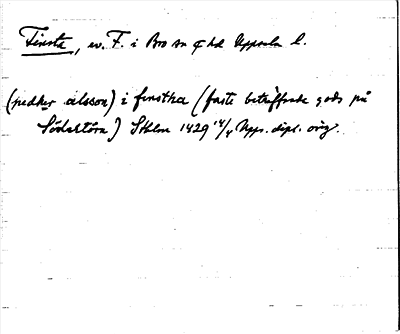 Finsta, nv. F. i Bro sn o hd Uppsala l.
(pedher alsson) i finstha (faste beträffande gods på
Södertörn) Sthlm 1429 14/4 Upps. dipl. orig.